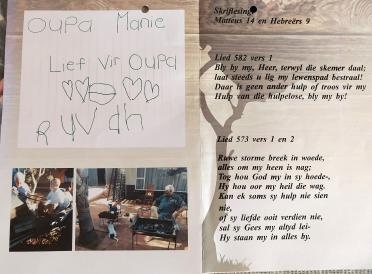 Oupa Manie
Lief Vir Oupa
Skriflesing
Matteus 14 en Hebreërs 9
Lied 582 vers 1
Bly by my, Heer, terwyl die skemer daal;
laat steeds u lig my lewenspad bestraal!
Daar is geen ander hulp of troos vir my
Hulp van die hulpelose, bly my by!
Lied 573 vers 1 en 2
Ruwe storme breek in woede,
alles om my heen is nag;
Tog hou God my in sy hoede-,
Hy hou oor my heil die wag.
Kan ek soms sy hulp nie sien
nie,
of sy liefde ooit verdien nie,
sal sy Gees my altyd lei-
Hy staan my in alles by.